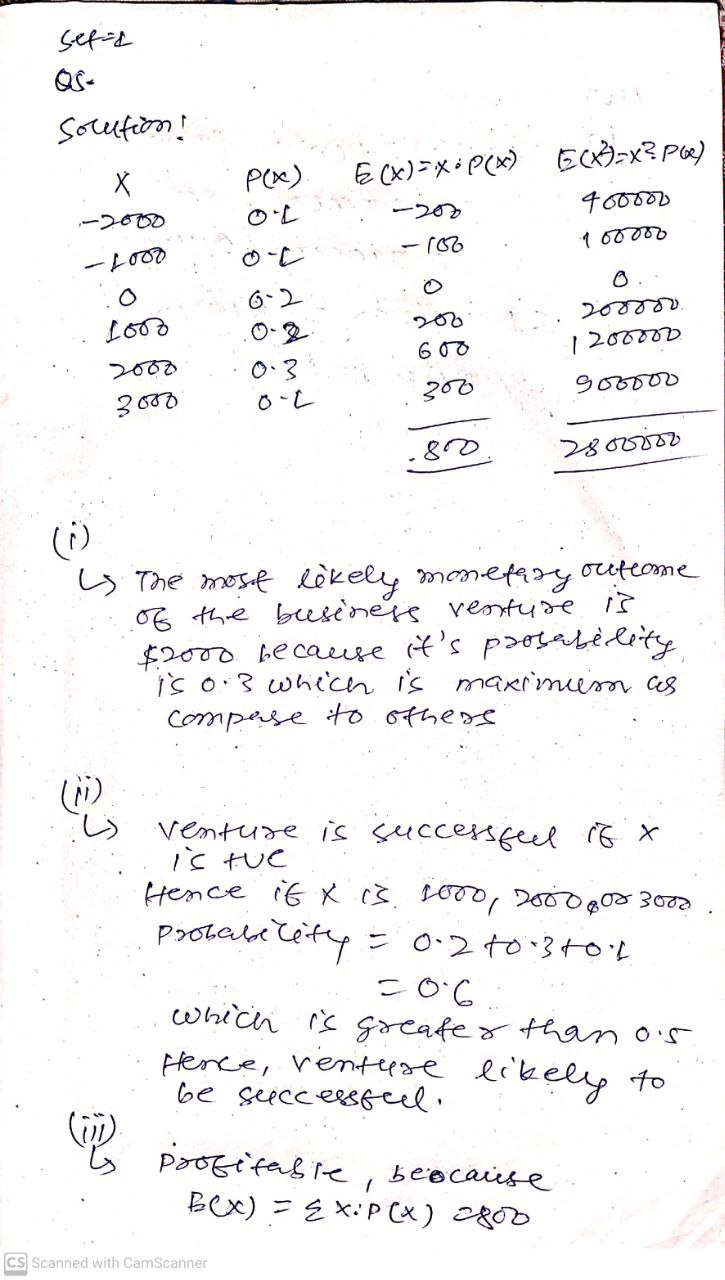 Set-1
Q5.
Solution!
X P(x) E(X)=X.P(X) E(X²)=X².P(x)
-2000 0.1 -200 400000
-1000 0.1 -100 100000
0 0.2 0 0
1000 0.2 200 200000
2000 0.3 600 1200000
3000 0.1 300 900000
800 2800000
(i)
↳ The most likely monetary outcome
of the business venture is
$2000 because it's probability
is 0.3 which is maximum as
compase to others
(ii)
↳ venture is successful if x
is +ve
Hence if X is 1000, 2000 or 3000
Probability = 0.2+0.3+0.1
= 0.6
which is greater than 0.5
Hence, venture likely to
be successful.
(iii)
↳ Profitable, beocause
E(X) = Σ X.P(X) = 800
CS Scanned with CamScanner